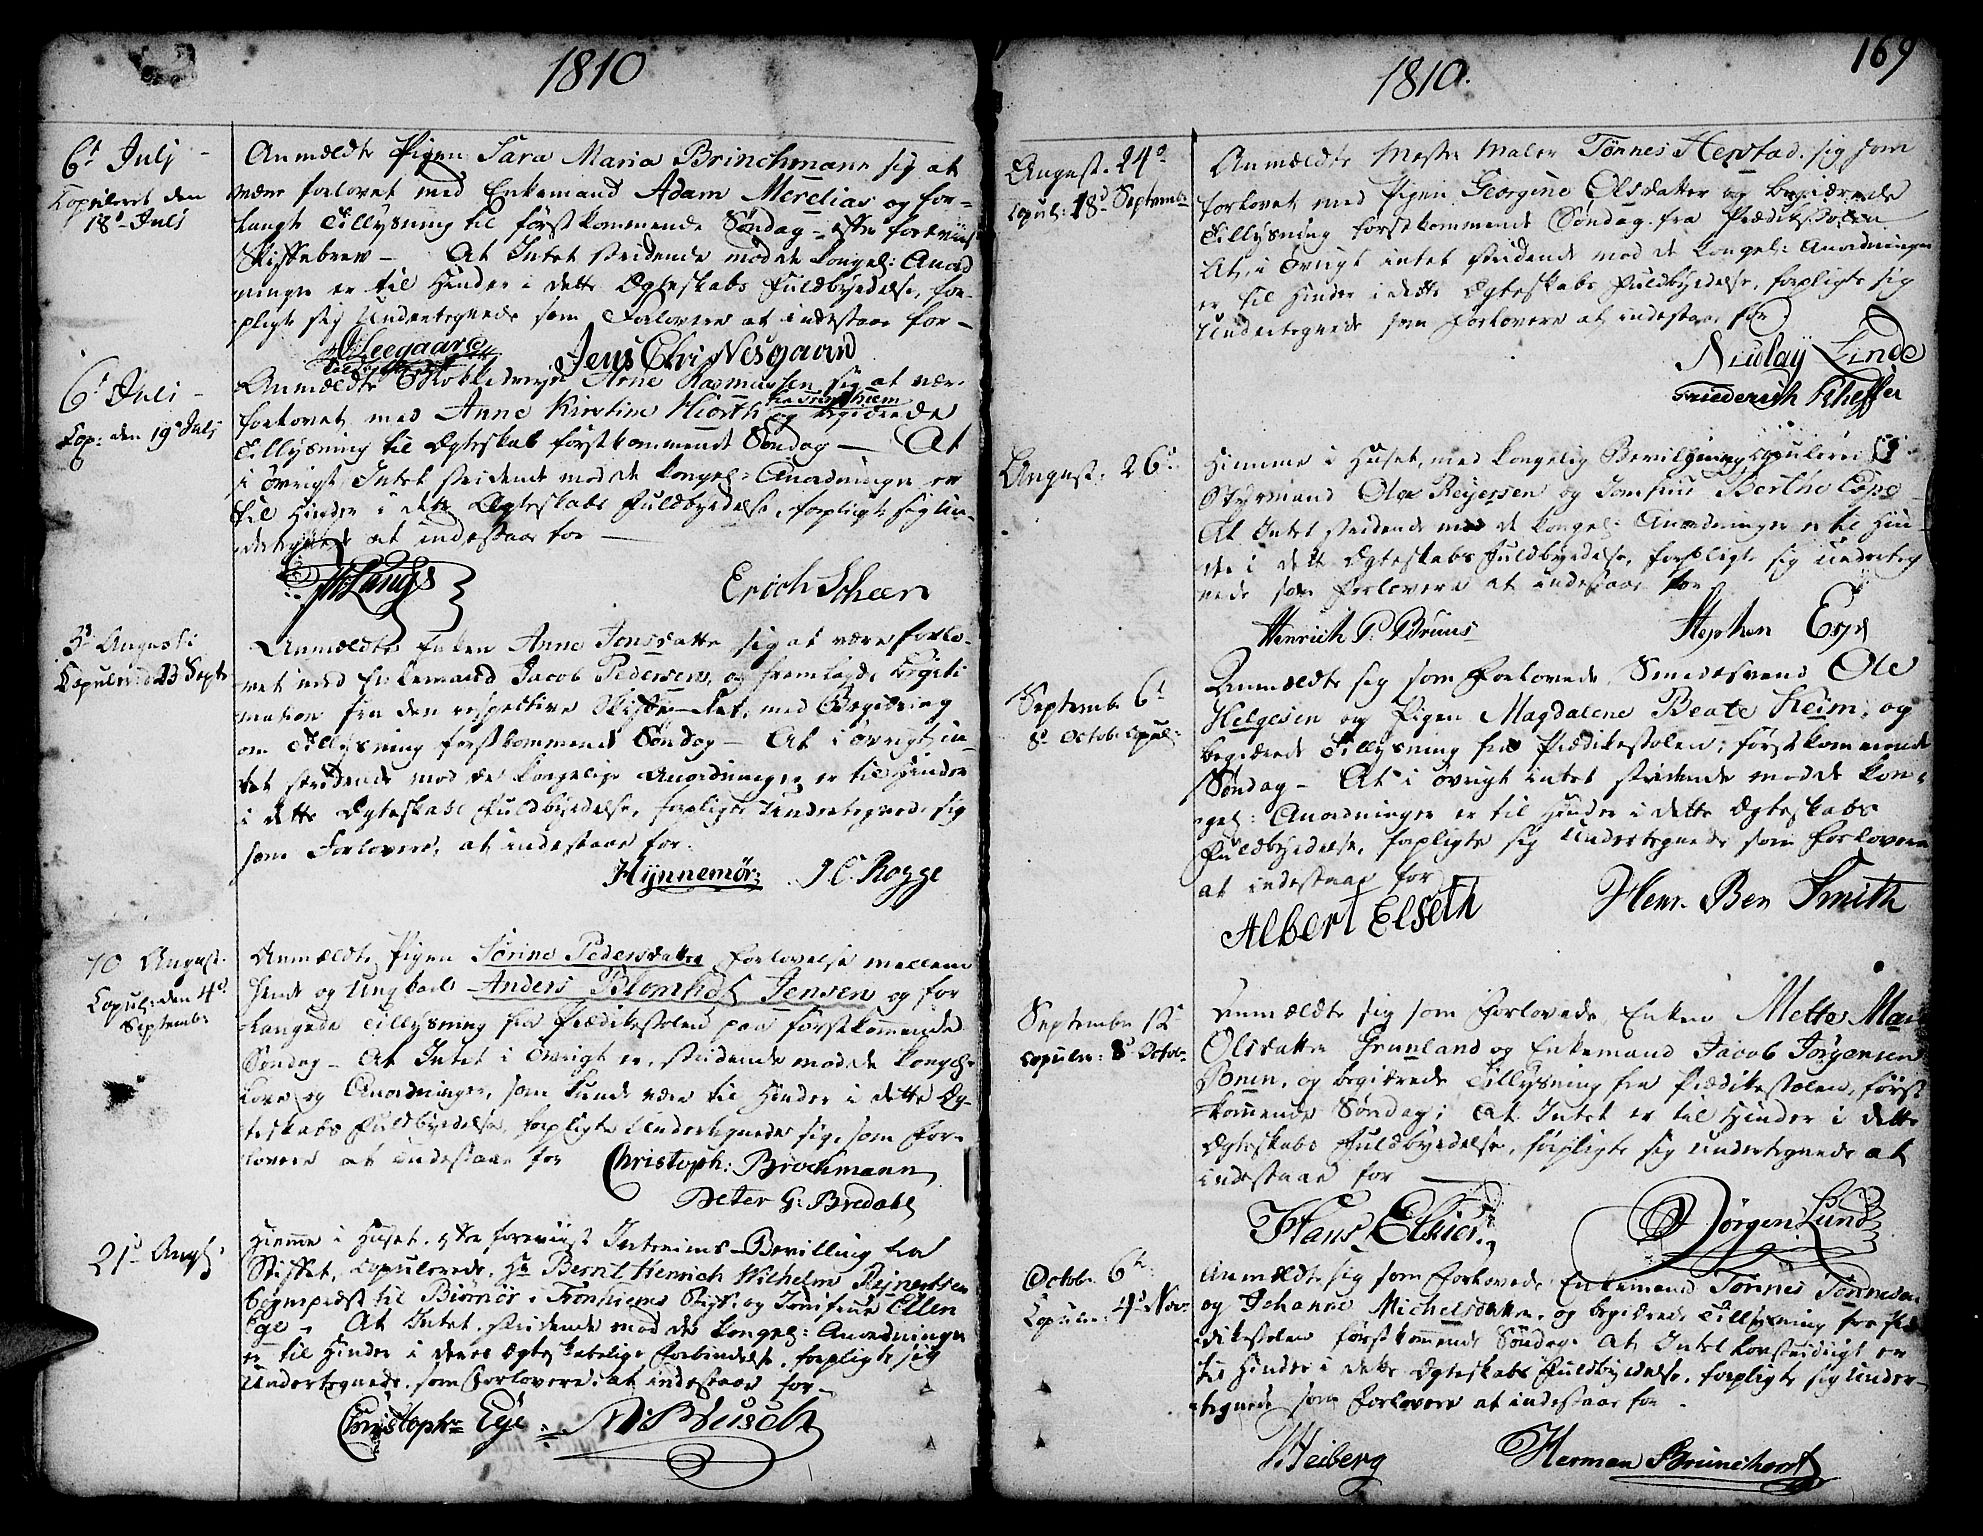 1810
6t Julj -
Copuleret den
18d Julj
Anmeldte Pigen Sara Maria Brinchmann sig at
være forlovet med Enkemand Adam Merelias og for-
langte Tillysning til förstkommende Søndag - efter foreviist
Skiftebrev - At Intet stridende mod de kongel: Anord
ninger er til Hinder i dette Ægteskabs Fuldbyrdelse, for-
pligte sig Undertegnede som Forlovere at indestaae for -
Leegaard
Jens Chr: Nesgaard
6t Juli -
Cop: den 19d Juli
Anmældte Arne Rasmussen sig at være
fra Tronhiem
forlovet med Anne Kirstine Hiorth og begierede
Tillysning til Ægteskab förstkommende Søndag - At
i övrigt Intet stridende mod de kongel: Anordninger er
til Hinder i dette Ægteskabs Fuldbyrdelse, forpligte sig Un-
dertegnede at indestaae for -
Lange
Erich Scheen
3d Augusti
Copulered 23 Septr
Anmældte Enken Anne Jensdatter sig at være forlo-
vet med Enkemand Jacob Pedersen, og fremlagde Legiti
mation fra den respective Skifte-Ret, med Begiering
om Tillysning förstkommende Søndag - At i övrigt in-
tet stridende mod de kongelige Anordninger er til Hinder
i dette Ægteskabs Fuldbyrdelse, forpligter Undertegnede sig
som Forlovere, at indestaae for.
Hynnemör: J. C. Rogge
10 August.
Copul: den 4d
Septemb:
Anmældte Pigen Sörine Pedersdatter Forlovelse mellem
hende og Ungkarl Anders Blomhof Jensen og for
langede Tillysning fra Prædikestolen paa förstkommende
Søndag - At Intet i övrigt er stridende mod de kongel:
Love og Anordninger, som kunde være til Hinder i dette Æg-
teskabs Fuldbyrdelse, forpligte Undertegnede sig, som For-
lovere at indestaae for Christoph: Brochmann
Peter G: Bredahl
21d Augst
Hiemme i Huset, efter foreviist Interims-Bevilling fra
Stiftet, Copulerede, Hr Bernt Henrich Wilhelm Reinertsen
Sognepræst til Biörnör i Tronhiems Stift, og Jomfrue Ellen
Ege - At Intet stridende mod de kongel: Anordninger
er til Hinder i deres ægteskabelige Forbindelse, forpligte sig
Undertegnede, som Forlovere, at indestaae for -
Christopher Ege. Busch
1810.
169
August. 24d
Copul: 18d Septembr
Anmældte Mester Maler Tönnes Herstad sig som
forlovet med Pigen Georgine Olsdatter og begierede
Tillysning förstkommende Søndag fra Prædikestolen
At i övrigt intet stridende mod de kongel: Anordninger
er til Hinder i dette Ægteskabs Fuldbyrdelse, forpligte sig
Undertegnede som Forlovere at indestaae for
Nicolaÿ Linde
Friederich Kheffer
August. 26d
Hiemme i Huset, med kongelig Bevilgning, Copuleret
Styrmand Ole Reyersen og Jomfrue Berthe Espe -
At Intet stridende mod de kongel: Anordninger er til Hin-
der i dette Ægteskabs Fuldbyrdelse, forpligte sig Underteg
nede som Forlovere at indestaae for
Henrich P. Bruns Stephen Espe
Septembr 6t
8d Octobr Copul:
Anmældte sig som Forlovede, Smedesvend Ole
Helgesen og Pigen Magdalene Beate Heim, og
begierede Tillysning fra Prædikestolen, förstkommende
Søndag - At i övrigt intet stridende mod de kon-
gel: Anordninger er til Hinder i dette Ægteskabs
Fuldbyrdelse, forpligte sig Undertegnede som Forlovere
at indestaae for
Albert Elseth Henr. Ben Smith
Septembr 12t
Copuler: 8d Octob:
Anmældte sig som Forlovede, Enken Mette Mar
Olsdatter Grunland og Enkemand Jacob Jörgensen
Bonen, og begierede Tillysning fra Prædikestolen, först
kommende Søndag; At Intet er til Hinder i dette
Ægteskabs Fuldbyrdelse, forpligte sig Undertegnede at
indestaae for -
Hans Jörgen Lund
Octobr 6te
Copuler: 4d Nov:
Anmældte sig som Forlovede, Enkemand Tönnes Tönnesen
og Johanne Michelsdatter, og begierede Tillysning fra Præ
dikestolen förstkommende Søndag. At Intet Lovstridigt er
til Hinder i dette Ægteskabs Fuldbyrdelse, forpligte sig Under-
tegnede som Forlovere at indestaae for -
Heiberg Herman Brunchorst